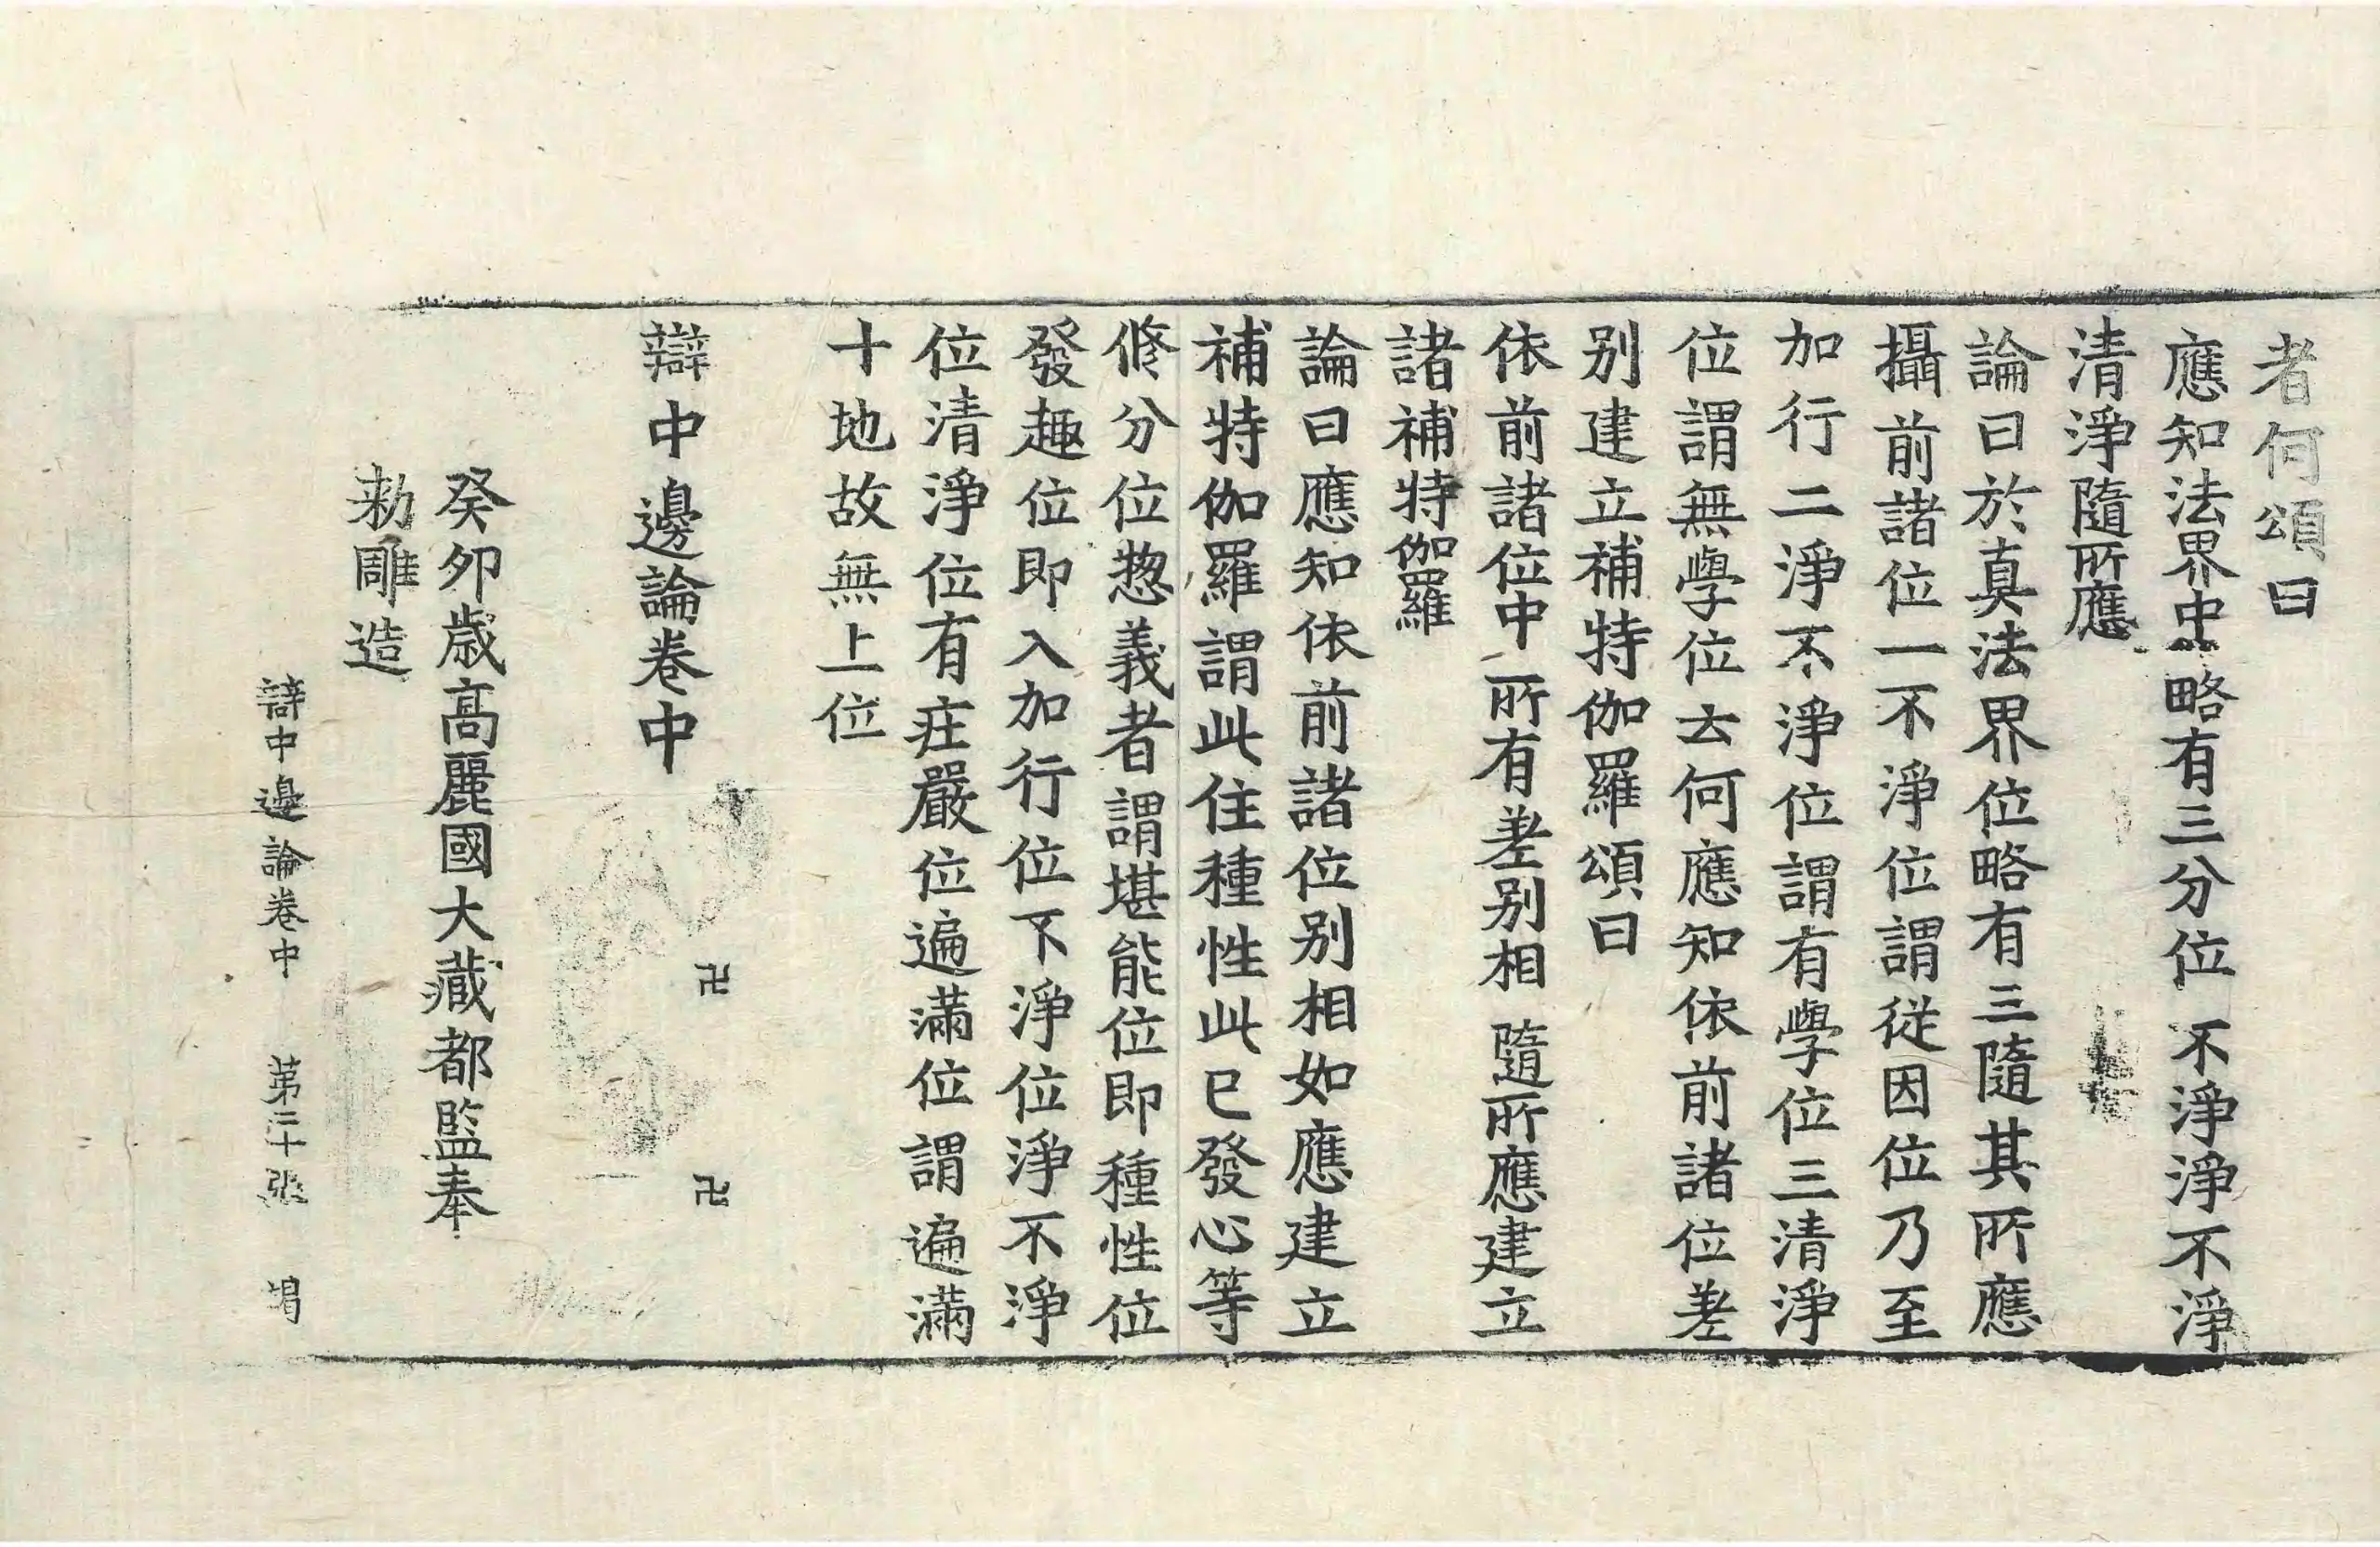 者何頌曰
應知法界中 略有三分位 不淨淨不淨
清淨隨所應
論曰於真法界位略有三隨其所應
攝前諸位一不淨位謂從因位乃至
加行二淨不淨位謂有學位三清淨
位謂無學位云何應知依前諸位差
別建立補特伽羅頌曰
依前諸位中 所有差別相 隨所應建立
諸補特伽羅
論曰應知依前諸位別相如應建立
補特伽羅謂此住種性此已發心等
修分位惣義者謂堪能位即種性位
發趣位即入加行位不淨位淨不淨
位清淨位有莊嚴位遍滿位謂遍滿
十地故無上位
辯中邊論卷中
卍 卍
癸卯歲高麗國大藏都監奉
勅雕造
辯中邊論卷中 第二十張